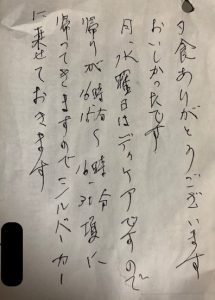 夕食ありがとうございます
おいしかったです
月、水曜日はディケアですので
帰りが16時15分～16時30分頃に
帰ってきますのでシルバーカー
に乗せておきます